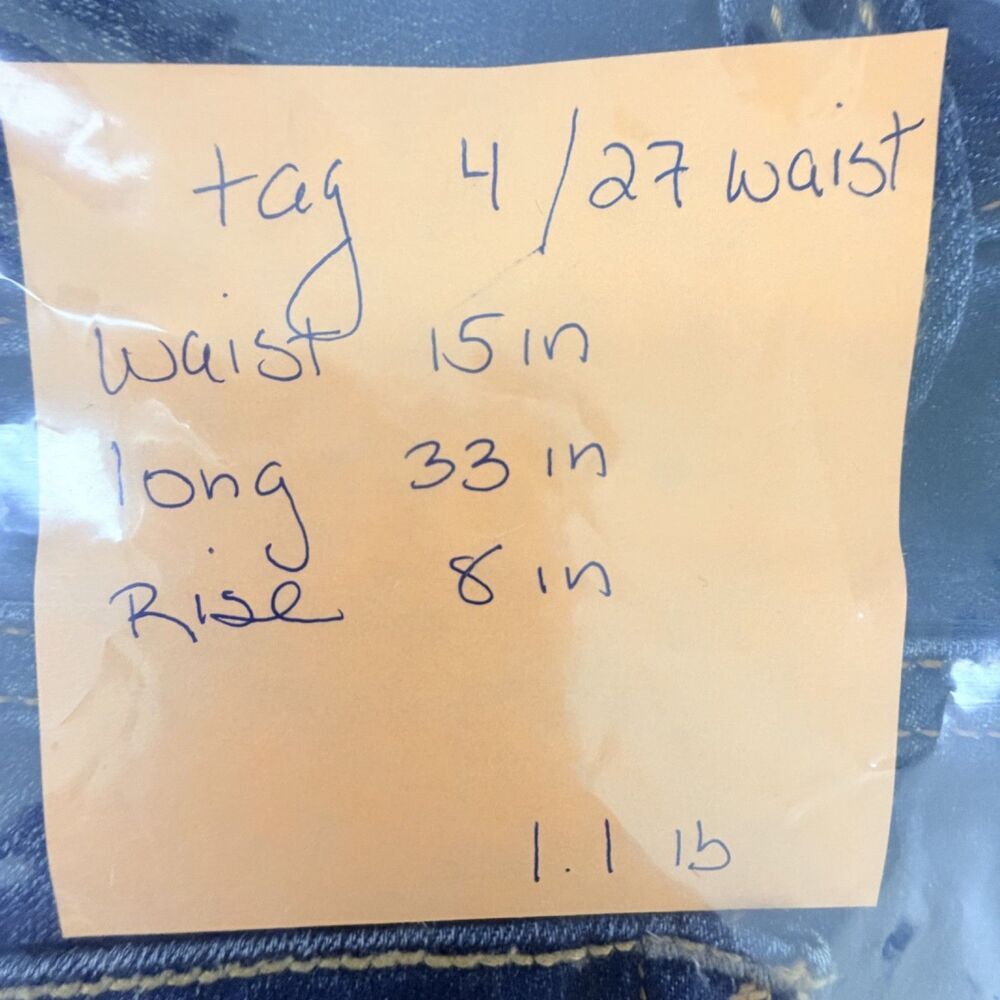 tag 4/27 waist
waist 15 in
long 33 in
Rise 8 in
1.1 lb